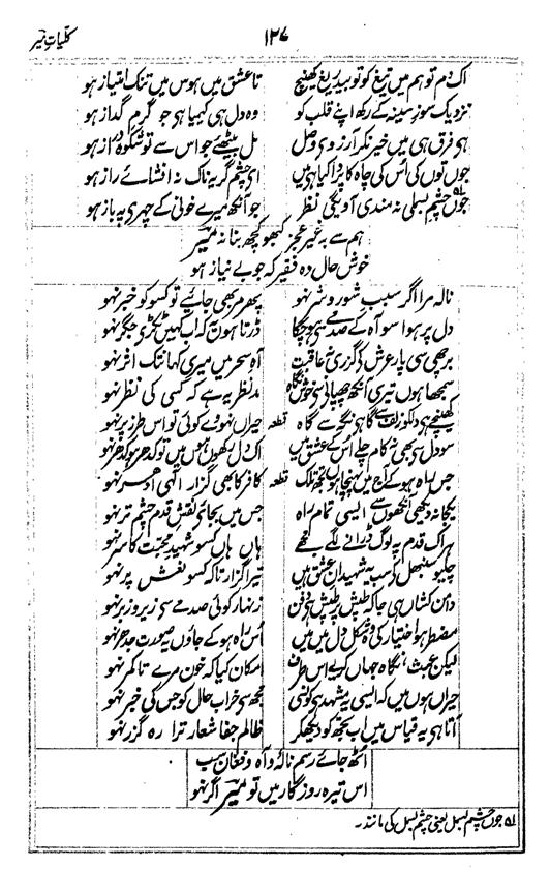 کلیات میر
۱۲۷
اک دم تو ہم میں تیغ کو تو بیدریغ کھینچ تا عشق میں ہوس میں تنک امتیاز ہو
نزدیک سوز سینہ کے رکھ اپنے قلب کو وہ دل ہی کیمیا ہی جو گرم گداز ہو
ہی فرق ہی میں خیر نکر آرزوی وصل مل بیٹھیے جو اس سے تو شکوہ دراز ہو
جوں توں کی اس کی چاہ کا پردا کیا ہی میں ای چشم گریہ ناک نہ افشائے راز ہو
جوں چشم بسملی نہ مندی آویگی نظر جو آنکھ میرے خونی کے چہری پہ باز ہو
ہم سے بہ غیر عجز کبھو کچھ بنا نہ میر
خوش حال وہ فقیر کہ جو بے نیاز ہو
نالہ مرا اگر سبب شور و شر نہو پھر مر بھی جائیے تو کسو کو خبر نہو
دل پر ہوا سو آہ کے صدمے سی ہو چکا ڈرتا ہوں یہ کہ اب کہیں ٹکڑی جگر نہو
برچھی سی پار عرش کی گزری نہ عاقبت آہ سحر میں میری کہاں تک اثر نہو
سمجھا ہوں تیری آنکھ چھپانی سی خوش نگاہ مد نظر یہ ہے کہ کسی کی نظر نہو
کھینچے ہی دلکو زلف سے گاہی نگہ سے گاہ قطعہ حیراں نہووے کوئی تو اس طرز پر نہو
سو دل سی بھی نہ کام چلے اس کے عشق میں اک دل رکھوں ہوں میں تو کدھر ہو کدھر نہو
جس راہ ہو کے آج میں پہنچا ہوں تجھ تلک قطعہ کافر کا بھی گزار الٰہی ادھر نہو
یکجا نہ دیکھی آنکھوں سے ایسی تمام راہ جس میں بجائے نقش قدم چشم تر نہو
ہر اک قدم پہ لوگ ڈرانے لگے مجھے ہاں ہاں کسو شہید محبت کا سر نہو
چلیو سنبھل کے سب یہ شہیدان عشق ہیں تیرا گزار تا کہ کسو نعش پر نہو
دامن کشاں ہی جا کہ طپش پر طپش ہی دفن زنہار کوئی صدمے سی زیر و زبر نہو
مضطر ہو اختیار کی وہ شکل دل میں میں اس راہ ہو کے جاؤں یہ صورت جدھر نہو
لیکن عبث نگاہ جہاں کریے اس طرف امکان کیا کہ خون مرے تا کمر نہو
حیراں ہوں میں کہ ایسی یہ مشہد ہی کونسی مجھ سی خراب حال کو جس کی خبر نہو
آتا ہی یہ قیاس میں اب تجھ کو دیکھکر ظالم جفا شعار ترا رہ گزر نہو
اٹھ جائے رسم نالہ و آہ و فغان سب
اس تیرہ روزگار میں تو میر اگر نہو
۵۱ جوں چشم بسمل یعنی چشم بسمل کی مانند۔